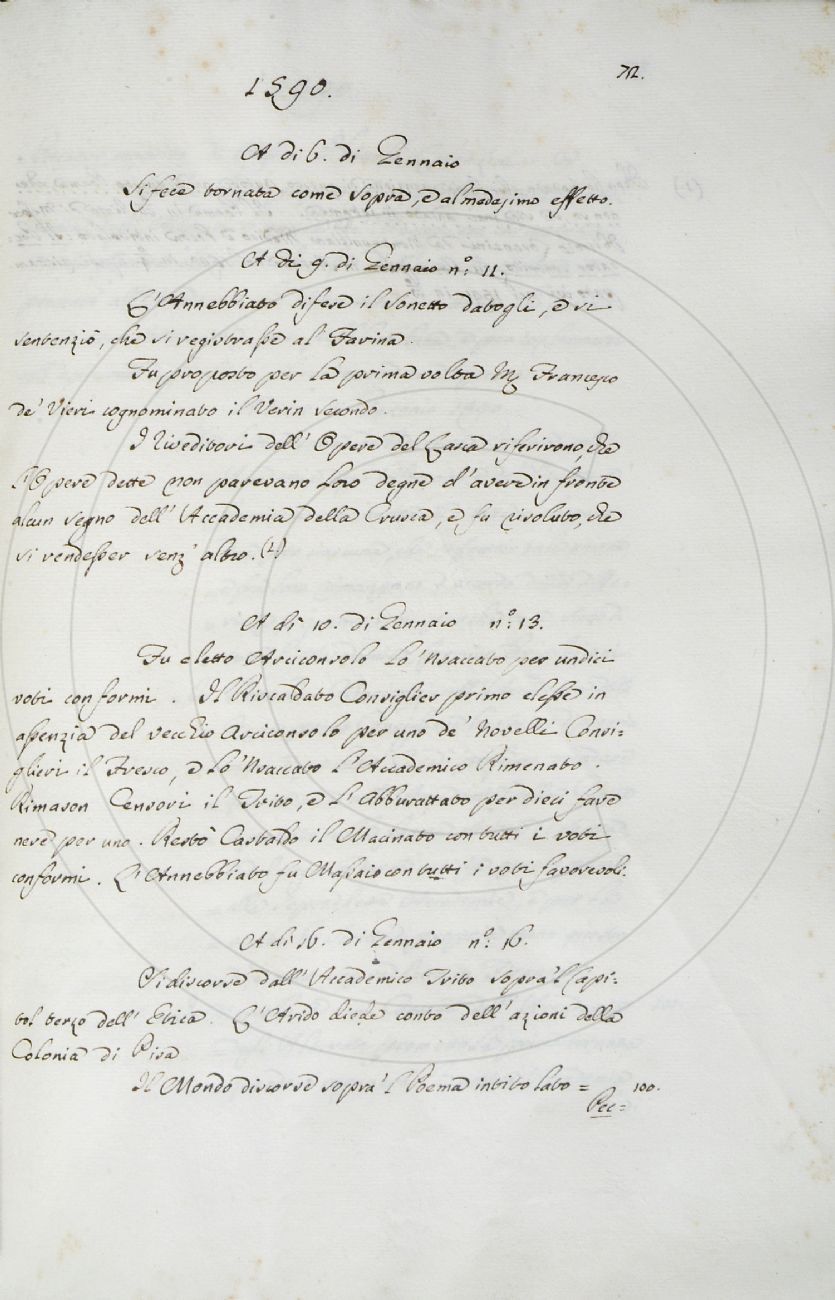 72.
1590.
A di 6. di Gennaio
Si fece tornata come sopra, e al medesimo effetto.
A di 9. di Gennaio n.° 11.
L'Annebbiato difese il sonetto datogli, e si
sentenziò, che si registrasse al Farina.
Fu proposto per la prima volta M. Francesco
de' Vieri cognominato il Verin secondo.
I Riveditori dell' Opere del Lasca riferirono, che
l'Opere dette non parevano loro degne d'avere in fronte
alcun segno dell' Accademia della Crusca, e fu risoluto, che
si rendesser senz' altro. (1)
A di 10. di Gennaio n.° 13.
Fu eletto Arciconsolo lo 'Nsaccato per undici
voti conformi. Il Riscaldato Consiglier primo elesse in
assenzia del vecchio Arciconsolo per uno de' Novelli Consi=
glieri il Fresco, e lo 'Nsaccato l'Accademico Rimenato.
Rimason Censori il Trito, e l'Abburattato per dieci fave
nere per uno. Restò Castaldo il Macinato con tutti i voti
conformi. L'Annebbiato fu Massaio con tutti i voti favorevoli.
A di 16. di Gennaio n.° 16.
Si discorse dall' Accademico Trito sopra 'l Capi=
tol terzo dell' Etica. L'Arido diede conto dell' azioni della
Colonia di Pisa
Il Mondo discorse sopra 'l Poema intitolato = 100.